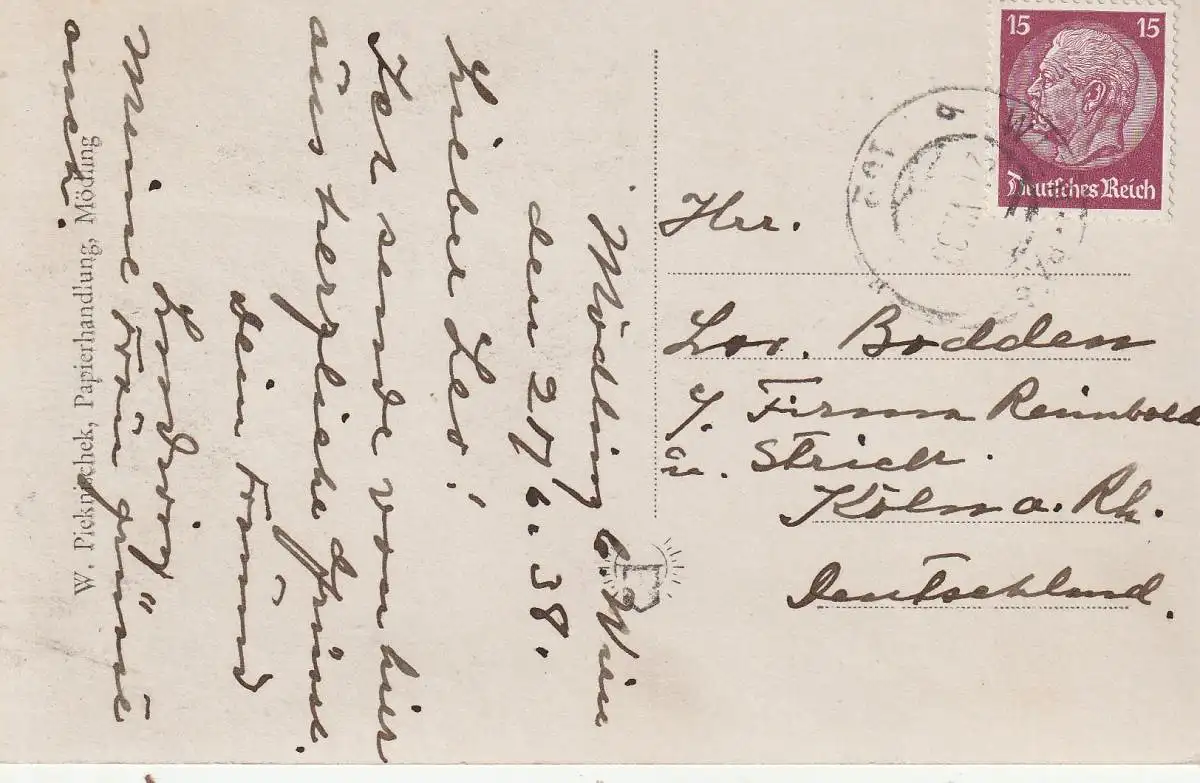 Mödling b. Wien
den 27/6.38.
Lieber Leo!
Ich sende von hier
aus herzliche Grüsse.
Dein Freund
Ludwig
Meine Frau
auch.
W. Picknischek, Papierhandlung, Mödling
15 15
Deutsches Reich
Hrr.
Leo. Bodden
c/. Firma Reimbold
u. Strick.
Köln a. Rh.
Deutschland.